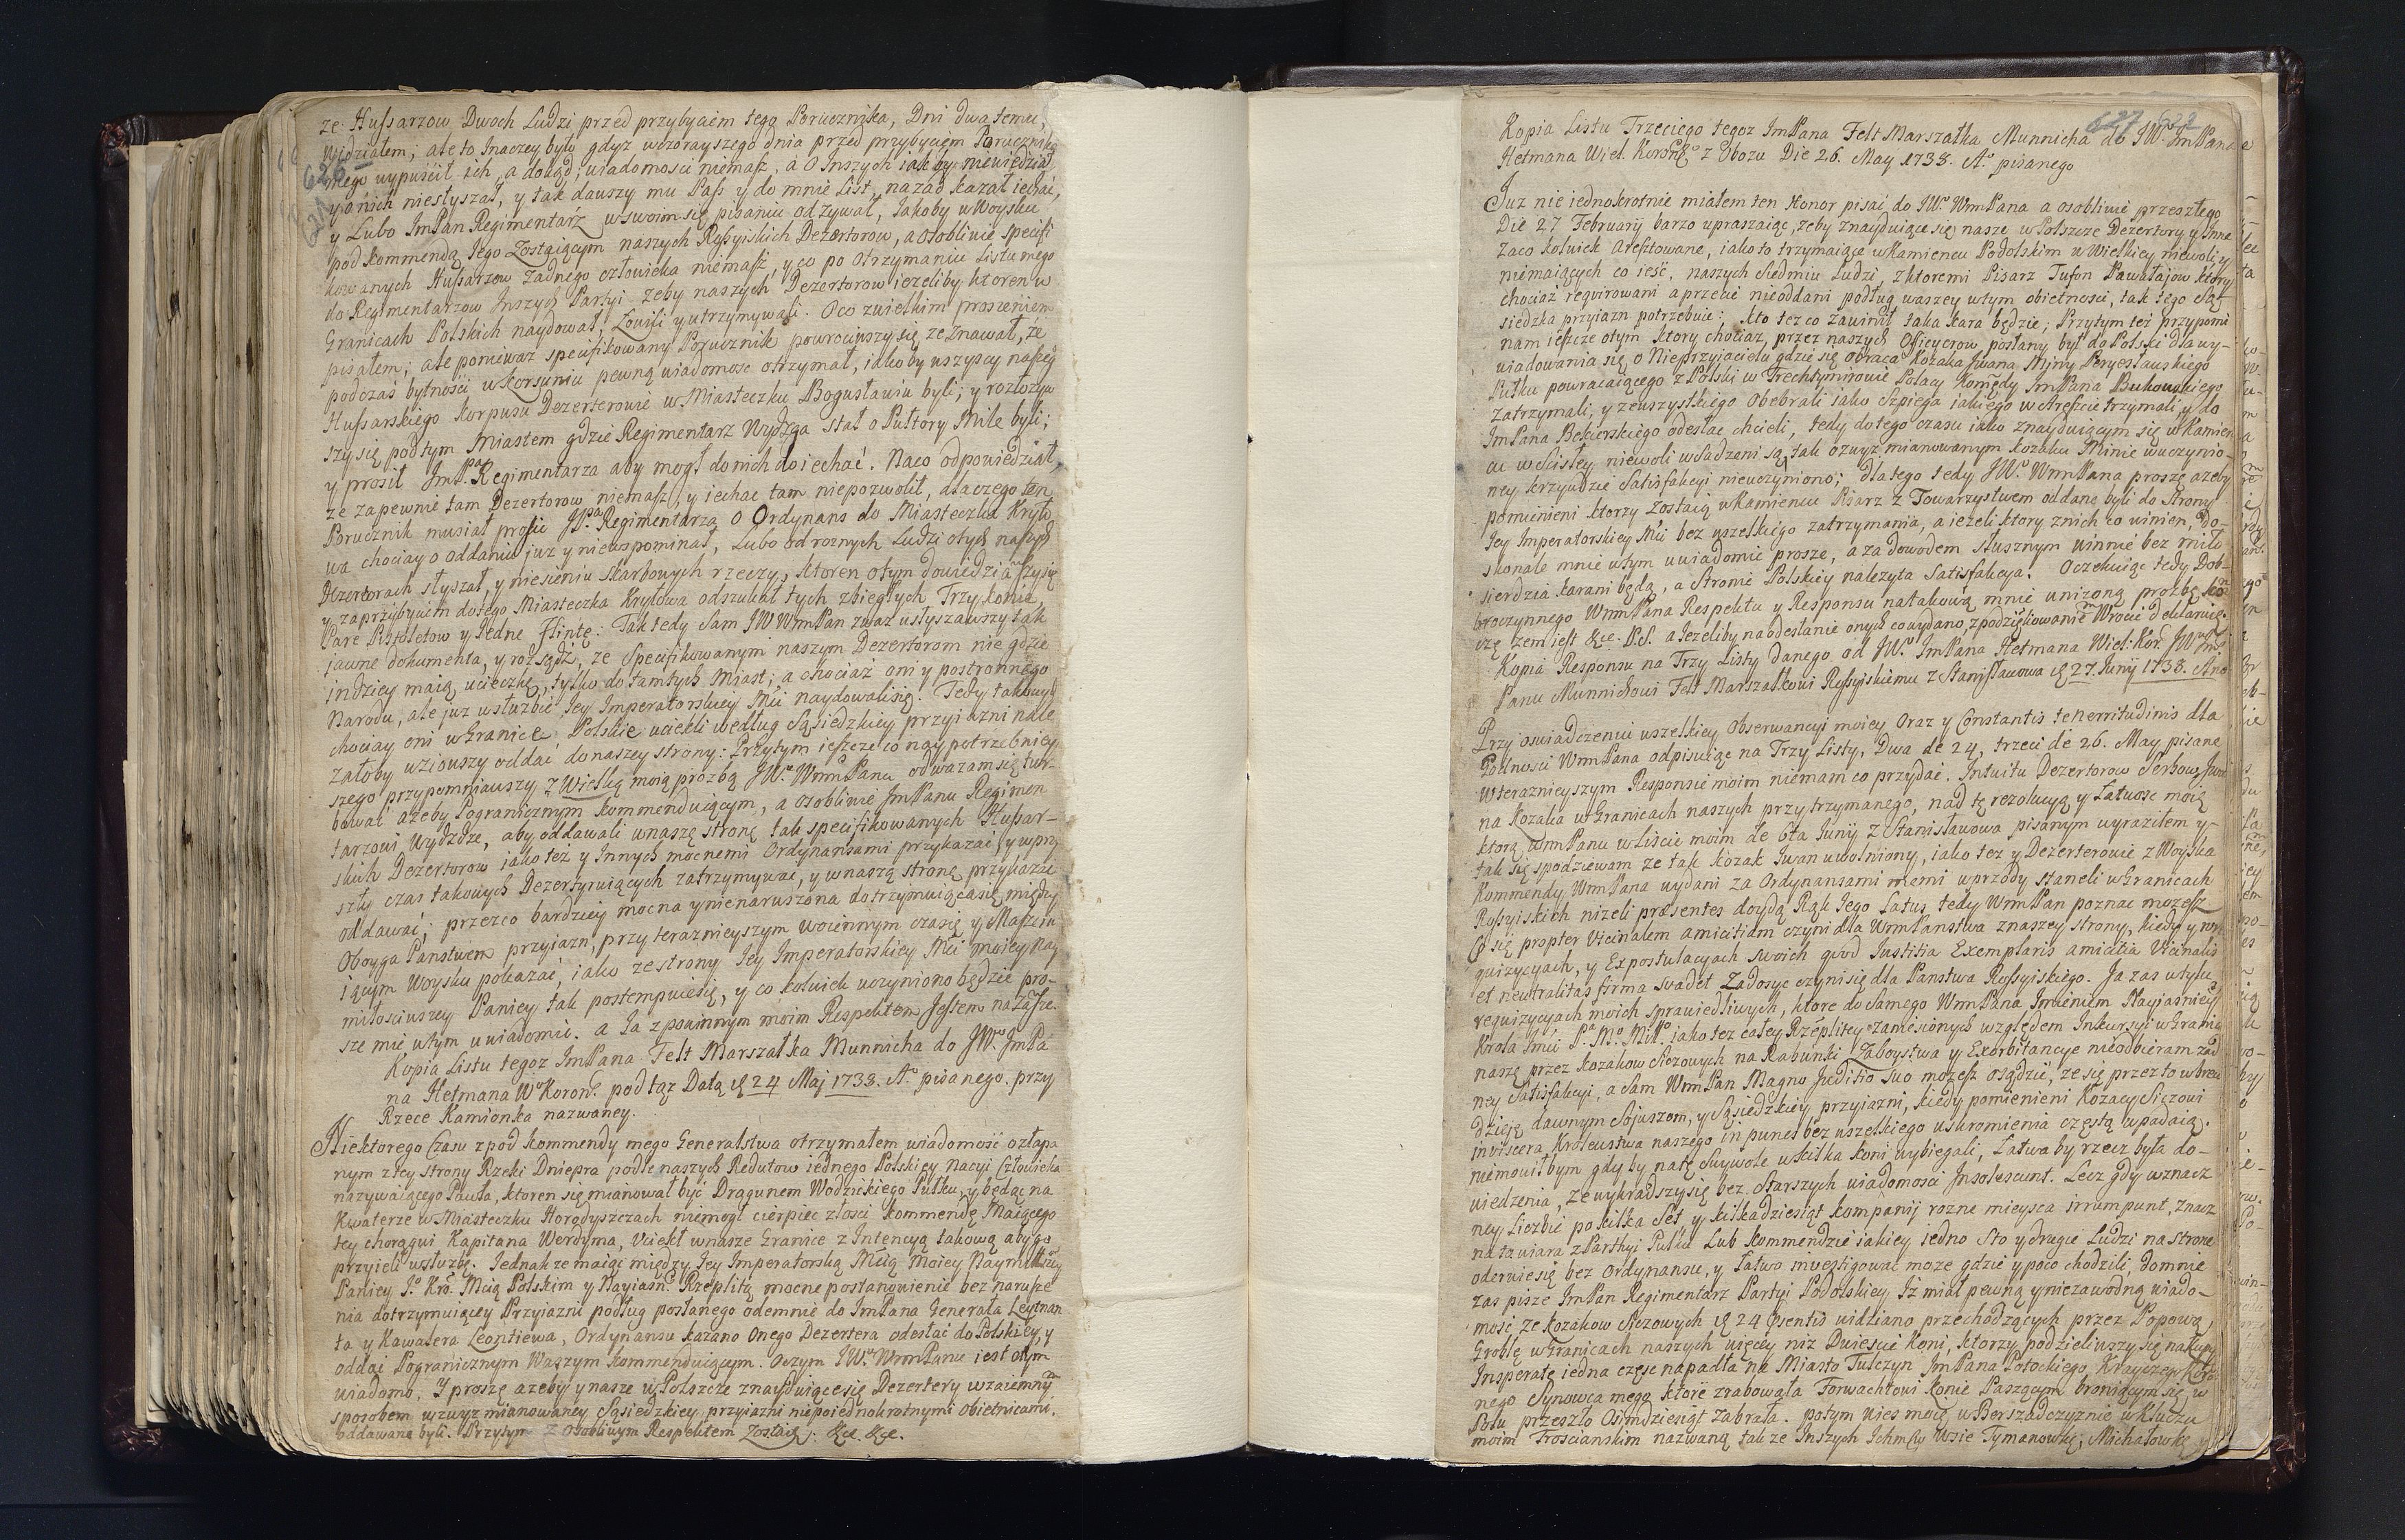 ze Hussarzow Dwoch Ludzi przed przybyciem tego Porucznika, Dni dwa temu,
Widziałem; ale to Inaczey było gdyz wczorayszego dnia przed przybyciem Porucznika
onego wypuscił ich, a dokąd; wiadomosci niemasz, a o Inszych iakby niewiedział
y onich niesłyszał, y tak dawszy mu Pass y do mnie List, nazad kazał iechac,
y Lubo ImPan Regimentarz wswoim się pisaniu odzywał, Iakoby w Woysku
pod kommendą Iego Zostaiącym naszych Rossyiskich Dezertorow, a osobliwie specifi
kowanych Hussarzow zadnego człowieka niemasz, y co po otrzymaniu Listu mego
do Regimentarzow Inszych Partyi zeby naszych Dezertorow iezeliby ktoren w
Granicach Polskich naydował, Łowili y utrzymywali. Oco zwielkim proszeniem
pisałem; ale poniewaz specifikowany Porucznik powrociwszy się zeznawał, ze
podczas bytnosci w Korsuniu pewną wiadomosc otrzymał, iakoby wszyscy naszeg
Hussarskiego Korpusu Dezerterowie w Miasteczku Bogusławiu byli; y rozłozyw
szy się pod tym Miastem gdzie Regimentarz Wydzga stał o Pułtory Mile byli;
y prosił ImPa Regimentarza aby mogł do nich doiechać. Naco odpowiedział,
ze zapewnie tam Dezertorow niemasz, y iechac tam niepozwolił, dlaczego ten
Porucznik musiał prosic JPa Regimentarza o Ordynans do Miasteczka Krylo
wa chociay o oddaniu juz y niewspominał, Lubo od roznych Ludzi otych naszych
Dezertorach słyszał, y niesieniu skarbowych rzeczy, ktoren otym dowiedziawszy się
y zaprzybyciem dotego Miasteczka Kryłowa odszukał tych zbiegłych Trzy konie,
Pare Pistoletow y Iedne Flintę: Tak tedy Sam JWWmPan zwaz usłyszawszy tak
jawne dokumenta, y rozsądz, ze Specifikowanym naszym Dezertorom nie gdzie
indziey maią ucieczkę, tylko do tamtych Miast; a chociaz oni y postronnego
Narodu, ale juz wsłuzbie Iey Imperatorskiey Mci naydowalisię. Tedy takowych
chociay oni w Granice Polskie uciekli według Sąsiedzkiey przyiazni nale
załoby wziowszy oddać do naszey strony: Przytym ieszcze co naypotrzebniey
szego przypomniawszy z Wielką moią prozbą JWu WmPanu odwazam się tur-
bować azeby Pogranicznym kommenduiącym, a osobliwie ImPanu Regimen
tarzowi Wydzdze, aby oddawali wnaszę stronę tak specifikowanych Hussar-
skich Dezertorow iako tez y Innych mocnemi Ordynansami przykazać y wprzy
szły czas takowych Dezertyruiących zatrzymywać, y wnaszą stronę przykazać
oddawać; przezco bardziey mocna y nienaruszona dotrzymuiącasię między
Oboyga Panstwem przyiazn, przy teraznieyszym woiennym czasie y Maszeru
iącym Woysku pokazać, iako ze strony Iey Imperatorskiey Mci moiey Nay
miłosciwszey Paniey tak postempuiesię, y co kolwiek uczyniono będzie pro-
szę mie wtym uwiadomić. a Ia z powinnym moim Respektem Jestem nazawsze.
Kopia Listu tegoz ImPana Felt Marszałka Munnicha do JWo ImPa
na Hetmana Wo Koronn. pod tąz Datą d 24 Maj 1738. Ao pisanego. przy
Rzece Kamionka nazwaney.
Niektorego Czasu zpod kommendy mego Generalstwa otrzymałem wiadomość ozłapa
nym z tey strony Rzeki Dniepra podle naszych Redutow iednego Polskiey Nacyi Człowieka
nazywaiącego Pawła, ktoren się mianował byc Dragunem Wodzickiego Pułku, y będąc na
Kwaterze w Miasteczku Horodyszczach niemogł cierpiec złosci kommendę Maiącego
tey chorągwi Kapitana Werdyma, Uciekł wnasze Granice z Intencyą takową aby go
przyieli wsłuzbę. Jednak ze maiąc między Iey Imperatorską Mcią Moiey Naymiłłszey
Paniey Jo Kro. Mcią Polskim y Nayiasn. Rzeplitą mocne postanowienie bez narusze
nia dotrzymuiącey Przyiazni podług posłanego odemnie do ImPana Generała Leytnan
ta y Kawalera Leontiewa, Ordynansu kazano Onego Dezertera odesłać do Polskiey, y
oddać Pogranicznym Waszym kommenduiącym. Oczym JWu WmPanu iest otym
wiadomo. Y proszę azeby y nasze w Polszcze znayduiącesię Dezertery wzaiemnym
sposobem wzwyz mianowaney Sąsiedzkiey przyiazni niepoiednokrotnymi Obietnicami,
oddawane byli. Przytym z osobliwym Respektem Zostaię. &c. &c.
627 622
Kopia Listu Trzeciego tegoz ImPana Felt Marszałka Munnicha do JWo ImPana
Hetmana Wiel. Koronngo z Obozu Die 26. May 1738. Ao pisanego
Juz nie iednokrotnie miałem ten Honor pisać do JWo WmPana a osobliwie przeszłego
Die 27 Februarij barzo upraszaiąc, zeby znayduiące się nasze w Polszcze Dezertery y Inne
Zaco kolwiek Aresztowane, iako to trzymaiące w Kamiencu Podolskim w Wielkiey niewoli, y
niemaiących co iesć, naszych Siedmiu Ludzi, z ktoremi Pisarz Tufon Pawałajow ktory
chociaz requirowani a przecie nieoddani podług waszey wtym obietnosci, tak tego Są-
siedzka przyiazn potrzebuie; kto tez co zawinił taka kara będzie; Przytym tez przypomi
nam ieszcze otym ktory chociaz, przez naszych Officyerow posłany był do Polski dla wy-
wiadowania się o Nieprzyiacielu gdzie się obraca Kozaka Jwana Miny Peryesławskiego
Pułku powracaiącego z Polski w Trechtymirowie Polacy Komędy ImPana Bukowskiego
zatrzymali, y zewszystkiego Obebrali iako Szpiega iakiego w Areszcie trzymali, y do
ImPana Bekierskiego odesłac chcieli, tedy do tego czasu iako znayduiącym się w Kamień
cu w Scisłey niewoli wsadzeni są, tak ozwyz mianowanym kozaku Minie wuczynio-
ney krzywdzie Satisfakcyi nieuczyniono; dla tego tedy JWo WmPana proszę azeby
pomienieni ktorzy zostaią w Kamiencu Pisarz z Towarzystwem oddane byli do Strony
Iey Imperatorskiey Mci bez wszelkiego zatrzymania, a iezeli ktory znich co winien, do-
skonale mnie wtym uwiadomic prosze, a za dowodem słusznym winnie bez miło
sierdzia karani będą, a Stronie Polskiey nalezyta Satisfakcya. Oczekuiąc tedy Dob-
roczynnego WmPana Respektu y Responsu natakową mnie unizoną prozbę, koń
czę zem iest &c. P.S. a Iezeliby na odesłanie onych co wydano, z podziękowaniem Wrocić deklaruię.
Kopia Responsu na Trzy Listy danego od JWo ImPana Hetmana Wiel: Kor. JWo Im
Panu Munnichowi Felt Marszałkowi Rossyiskiemu z Stanisławowa d 27. Junij 1738. Ano
Przy oswiadczeniu wszelkiey Obserwancyi moiey Oraz y Constantis tenerritudinis dla
Godnosci WmPana odpisuiąc na Trzy Listy, Dwa de 24, trzeci de 26. May pisane
w teraznieyszym Responsie moim niemam co przydać. Intuitu Dezertorow Serbow, Jwa
na Kozaka w Granicach naszych przytrzymanego, nad tę rezolucyą y Łatwosc moią
ktorą WmPanu w Liscie moim de 6ta Junij z Stanisławowa pisanym wyraziłem y
tak się spodziewam ze tak kozak Iwan uwolniony, iako tez y Dezerterowie z Woyska
Kommendy WmPana wydani za Ordynansami memi wprzody staneli w Granicach
Rossyiskich nizeli præsentes doydą Rąk Iego Łatus tedy WmPan poznac mozesz
Co się propter Vicinalem amicitiam czyni dla WmPanstwa znaszey strony, kiedy y w re
quizycyach, y Expostulacyach swoich quod Justitia Exemplaris amicitia Vicinalis
et neutralitas firma svadet Zadosyc czynisię dla Panstwa Rossyiskiego. Ja zas wtylu
requizycyach moich sprawiedliwych, ktore do Samego WmPana Imieniem Nayiasnieyo
Krola Jmci Pa. Mo. Miło iako tez całey Rzeplitey zaniesionych względem Inkursyi w Granice
naszę przez kozakow Siczowych na Rabunki Zaboystwa y Exorbitancye nieodbieram zad
ney Satisfakcyi, a Sam WmPan Magno Juditio suo mozesz osądzic, ze się przez to wbrew
dzieię dawnym Sojuszom, y Sąsiedzkiey przyiazni, kiedy pomienieni Kozacy Siczowi
in viscera Krolewstwa naszego in punct bez wszelkiego uskromienia częstą wpadaią.
niemowiłbym gdyby natę Swywole w kilka koni wybiegali, Łatwa by rzecz była do-
wiedzenia, ze wykradszy się bez Starszych wiadomosci Insolescunt. Lecz gdy w znacz
ney Liczbie po kilka Set, y kilkadziesiąt kompanij rozne mieysca irrumpunt, znacz
na ta wiara z Parthyi Pułku Lub kommendzie iakiey iedno Sto y drugie Ludzi na strone
oderwie się bez Ordynansu, y Łatwo inwestigowac moze gdzie y poco chodzili, Do mnie
zas pisze ImPan Regimentarz Partyi Podolskiey Iz miał pewną y niezawodną wiado-
mosć, ze kozakow Siczowych d 24 Præsentis widziano przechodzących przez Popową
Groblę w Granicach naszych więcey niz Dwiescie Koni, ktorzy podzieliwszy się nakupy
Insperate iedna częsc napadła na Miasto Tulczyn ImPana Potockiego, Krayczego Koron
nego Synowca mego ktore zrabowała Forwachtowi konie Paszącym broniącym się, w
Polu przeszło Osimdziesiąt zabrała. potym Wies moię w Berszadczyznie w Kluczu
moim Trosciańskim nazwaną takze Inszych Ichmciw Wsie Tymanowkę, Michałowkę y